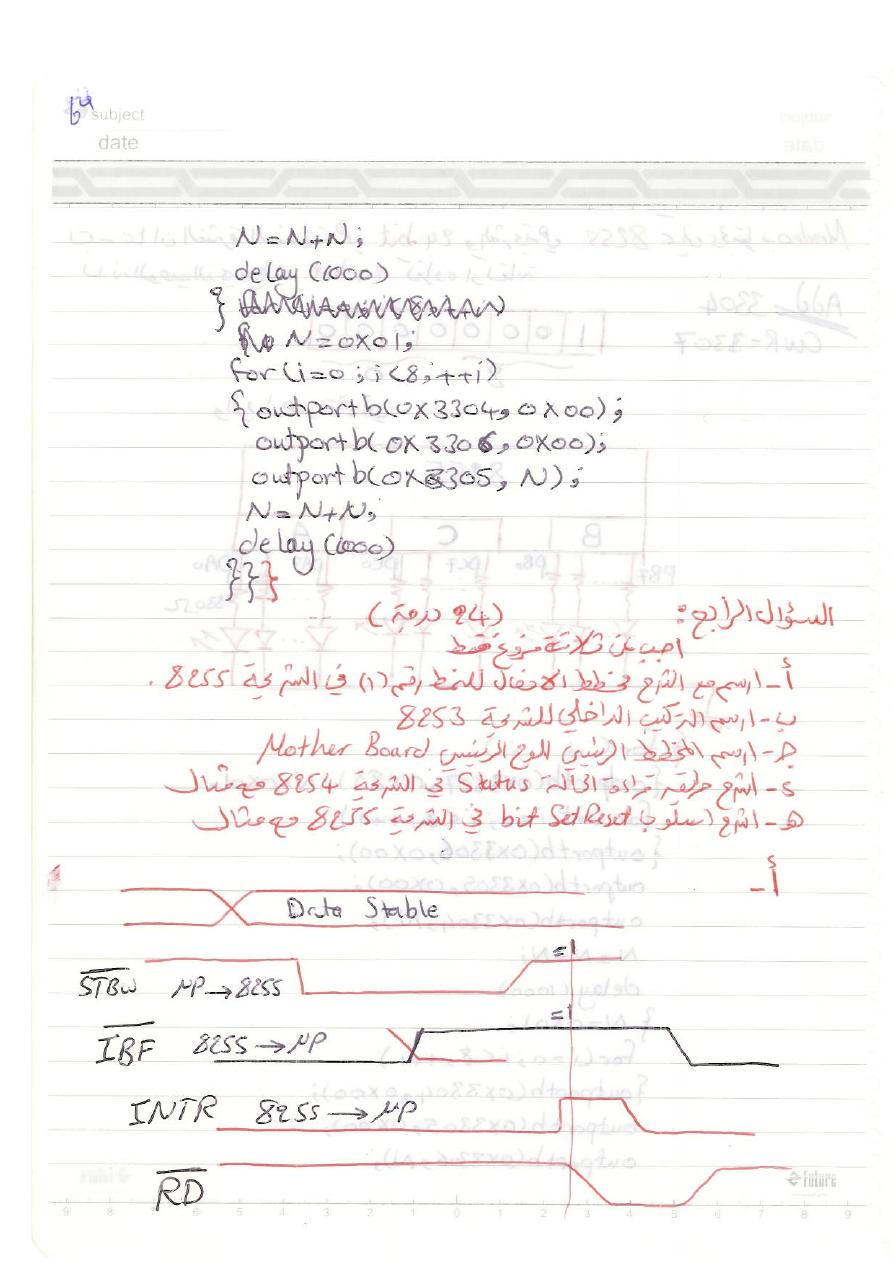 subject
date
N=N+N;
delay(1000)
}
N=0x01;
for(i=0;i<8;++i)
{outportb(0x3304,0x00);
outportb(0x3306,0x00);
outportb(0x3305,N);
N=N+N;
delay(1000)
}}}
السؤال الرابع: (24 درجة)
اجب عن ثلاثة فروع فقط
أ- ارسم مع الشرح مخطط الاتصال للنمط رقم (1) في الشريحة 8255.
ب- ارسم التركيب الداخلي للشريحة 8253
جـ- ارسم المخطط الرئيسي للوح الرئيسي Mother Board
د- اشرح طريقة قراءة الحالة Status في الشريحة 8254 مع مثال
هـ- اشرح اسلوب bit Set Reset في الشريحة 8255 مع مثال
أ-
Data Stable
=1
STB μP→8255
=1
IBF 8255→μP
INTR 8255→μP
RD
Future
9 8 7 6 5 4 3 2 1 0 1 2 3 4 5 6 7 8 9